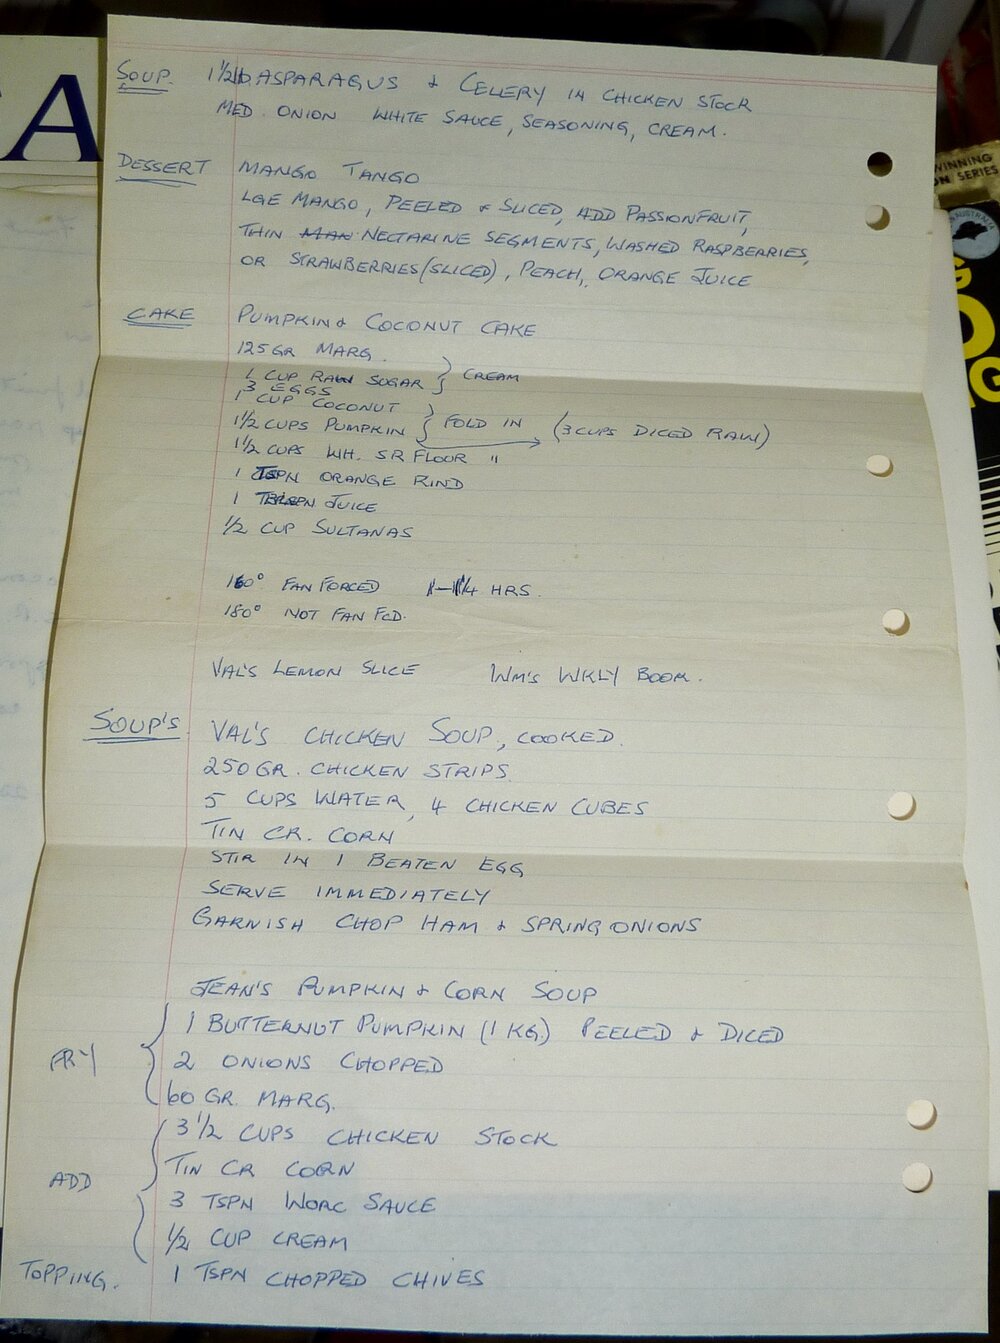 SOUP. 1½lb ASPARAGUS & CELERY IN CHICKEN STOCK
MED. ONION WHITE SAUCE, SEASONING, CREAM.
DESSERT MANGO TANGO
LGE MANGO, PEELED & SLICED, ADD PASSIONFRUIT,
THIN MAN NECTARINE SEGMENTS, WASHED RASPBERRIES,
OR STRAWBERRIES (SLICED), PEACH, ORANGE JUICE
CAKE PUMPKIN & COCONUT CAKE
125 GR MARG.
1 CUP RAW SUGAR } CREAM
3 EGGS
1 CUP COCONUT
1½ CUPS PUMPKIN } FOLD IN (3 CUPS DICED RAW)
1½ CUPS WH. SR FLOUR "
1 TSPN ORANGE RIND
1 JUICE
½ CUP SULTANAS
160° FAN FORCED 1-1¼ HRS.
180° NOT FAN FCD.
VAL'S LEMON SLICE WM'S WKLY BOOK.
SOUP'S VAL'S CHICKEN SOUP, COOKED.
250 GR. CHICKEN STRIPS
5 CUPS WATER, 4 CHICKEN CUBES
TIN CR. CORN
STIR IN 1 BEATEN EGG
SERVE IMMEDIATELY
GARNISH CHOP HAM & SPRING ONIONS
JEAN'S PUMPKIN & CORN SOUP
1 BUTTERNUT PUMPKIN (1 KG.) PEELED & DICED
FRY 2 ONIONS CHOPPED
60 GR. MARG.
3 ½ CUPS CHICKEN STOCK
TIN CR CORN
ADD
3 TSPN WORC SAUCE
½ CUP CREAM
TOPPING. 1 TSPN CHOPPED CHIVES
A
WINNING
ON SERIES
AUSTRALIA